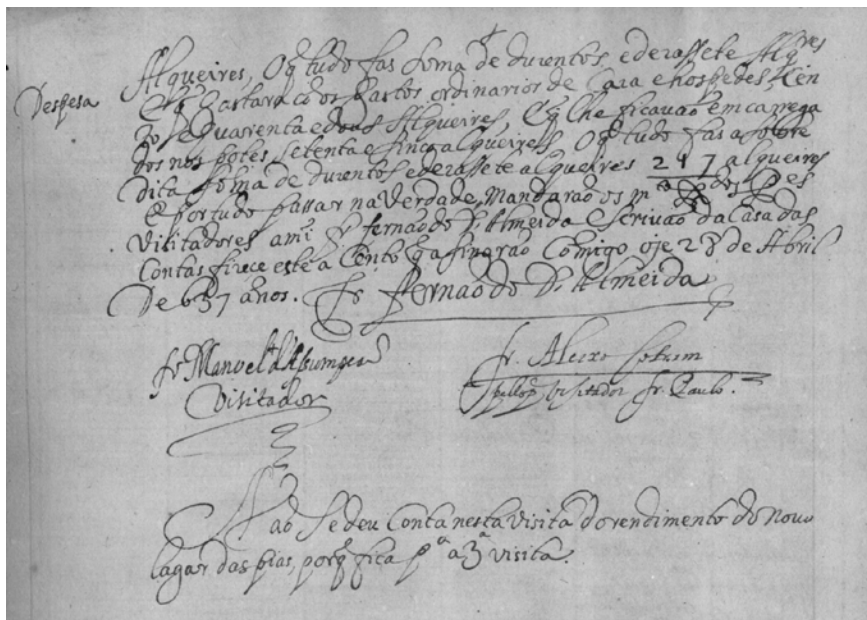 Alqueires, Oq̃ tudo fas soma de duzentos, e dezassete Alq.res
Despesa
Eq̃ gastara cõ os gastos ordinarios de Caza e hospedes, Cen
to e quarenta e dous Alqueires, Eq̃ lhe ficauaõ em carrega
dos nos potes setenta e sinco alqueires Oq̃ tudo fas a sobre
dita soma de duzentos e dezassete alqueires 217 alqueires
E por tudo passar na Verdade, Mandaraõ os m
Visitadores ami fr. fernaõ de D. Almeida escriuaõ da Casa das
Contas fizece este a Cento q̃ asinaraõ Comigo oje 28 de Abril
De 657 años. Fr. Fernaõ de D. Almeida
fr Manoel d'Assumpçaõ
Visitador
fr. Aleixo Cotrim
pello p. Visitador fr. Paulo.
Naõ se deu Conta nesta Visita do rendimento do nouo
lagar das pias, porq̃ fica p.a a 3.a visita.